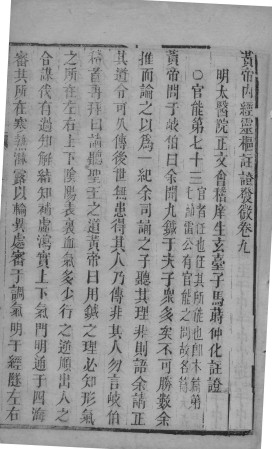 黃帝內經靈樞註證發微卷九
明太醫院正文會稽庠生玄臺子馬蒔仲化註證
○官能第七十三官者任也任其所能也卽本篇第
七節雷公有官能之問故名篇
黃帝問于岐伯曰余聞九鍼于夫子衆多矣不可勝數余
推而論之以爲一紀余司誦之子聽其理非則語余請正
其道令可久傳後世無患得其人乃傳非其人勿言岐伯
稽首再拜曰請聽聖王之道黃帝曰用鍼之理必知形氣
之所在左右上下陰陽表裏血氣多少行之逆順出入之
合謀伐有過知解結知補虛瀉實上下氣門明通于四海
審其所在寒熱淋露以輸異處審于調氣明于經隧左右